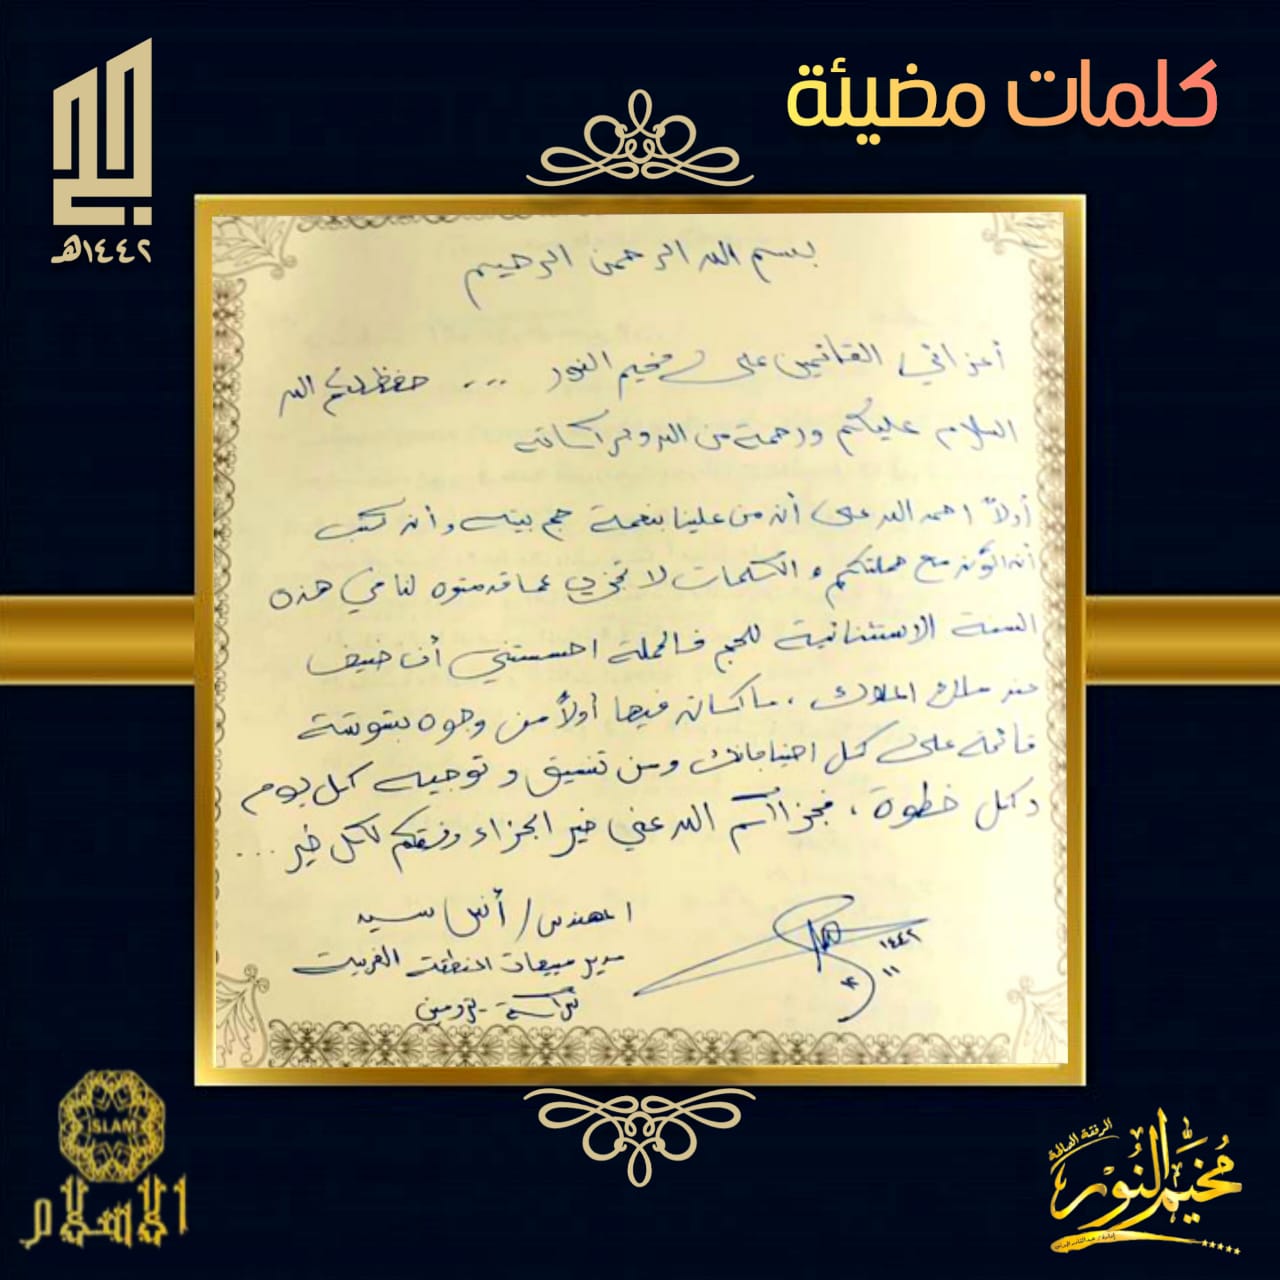 كلمات مضيئة
الحج
١٤٤٢هـ
بسم الله الرحمن الرحيم
أعزائي القائمين على مخيم النور ... حفظكم الله
السلام عليكم ورحمة من الله وبركاته
أولاً احمد الله على أن من علينا بنعمة حج بيته وأن كتب
أن أكون مع حملتكم والكلمات لا تجزي عما قدمتوه لنا في هذه
السنة الاستثنائية للحج فالحملة احسستني أن ضيف
عند ملك الملوك ، ما كان فيها أولاً من وجوه بشوشة
قائمة على كل احتياجاتك ومن تنسيق وتوجيه كل يوم
وكل خطوة ، فجزاكم الله عني خير الجزاء وفقكم لكل خير ...
المهندس / أنس سيد
مدير مبيعات المنطقة الغربية
١٤٤٢
١١
ISLAM
الاسلام
الرفقة الصالحة
مخيم النور